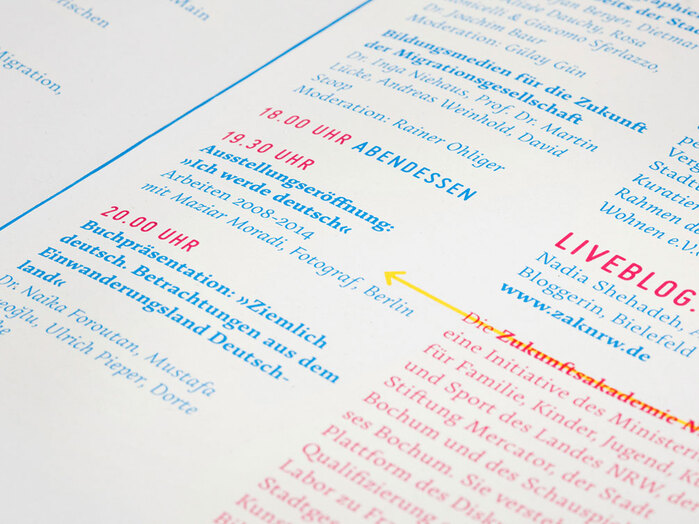 Main
Migration,
Dr. Joachim Baur
Moderation: Gülay Gün
Bildungsmedien für die Zukunft
der Migrationsgesellschaft
Dr. Inga Niehaus, Prof. Dr. Martin
Lücke, Andreas Weinhold, David
Stoop
Moderation: Rainer Ohliger
18.00 UHR ABENDESSEN
19.30 UHR
Ausstellungseröffnung:
»Ich werde deutsch«
Arbeiten 2008-2014
mit Maziar Moradi, Fotograf, Berlin
20.00 UHR
Buchpräsentation: »Ziemlich
deutsch. Betrachtungen aus dem
Einwanderungsland Deutsch-
land«
Dr. Naika Foroutan, Mustafa
Ulrich Pieper, Dorte
Rahmen de
Wohnen e.V.
LIVEBLOG.
Nadia Shehadeh,
Bloggerin, Bielefeld
www.zaknrw.de
Die Zukunftsakademie N
eine Initiative des Ministeri
für Familie, Kinder, Jugend, K
und Sport des Landes NRW, de
Stiftung Mercator, der Stadt
Bochum und des Schauspi
ses Bochum. Sie verste
plattform des Disk
Qualifizierung
Labor zu Fr
Stadtges
Kuns